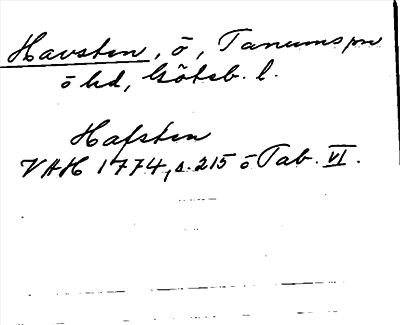 Havsten, ö, Tanums sn
ö hd, Göteb. l.
Hafsten
VAH 1774, s. 215 o Tab. VI.